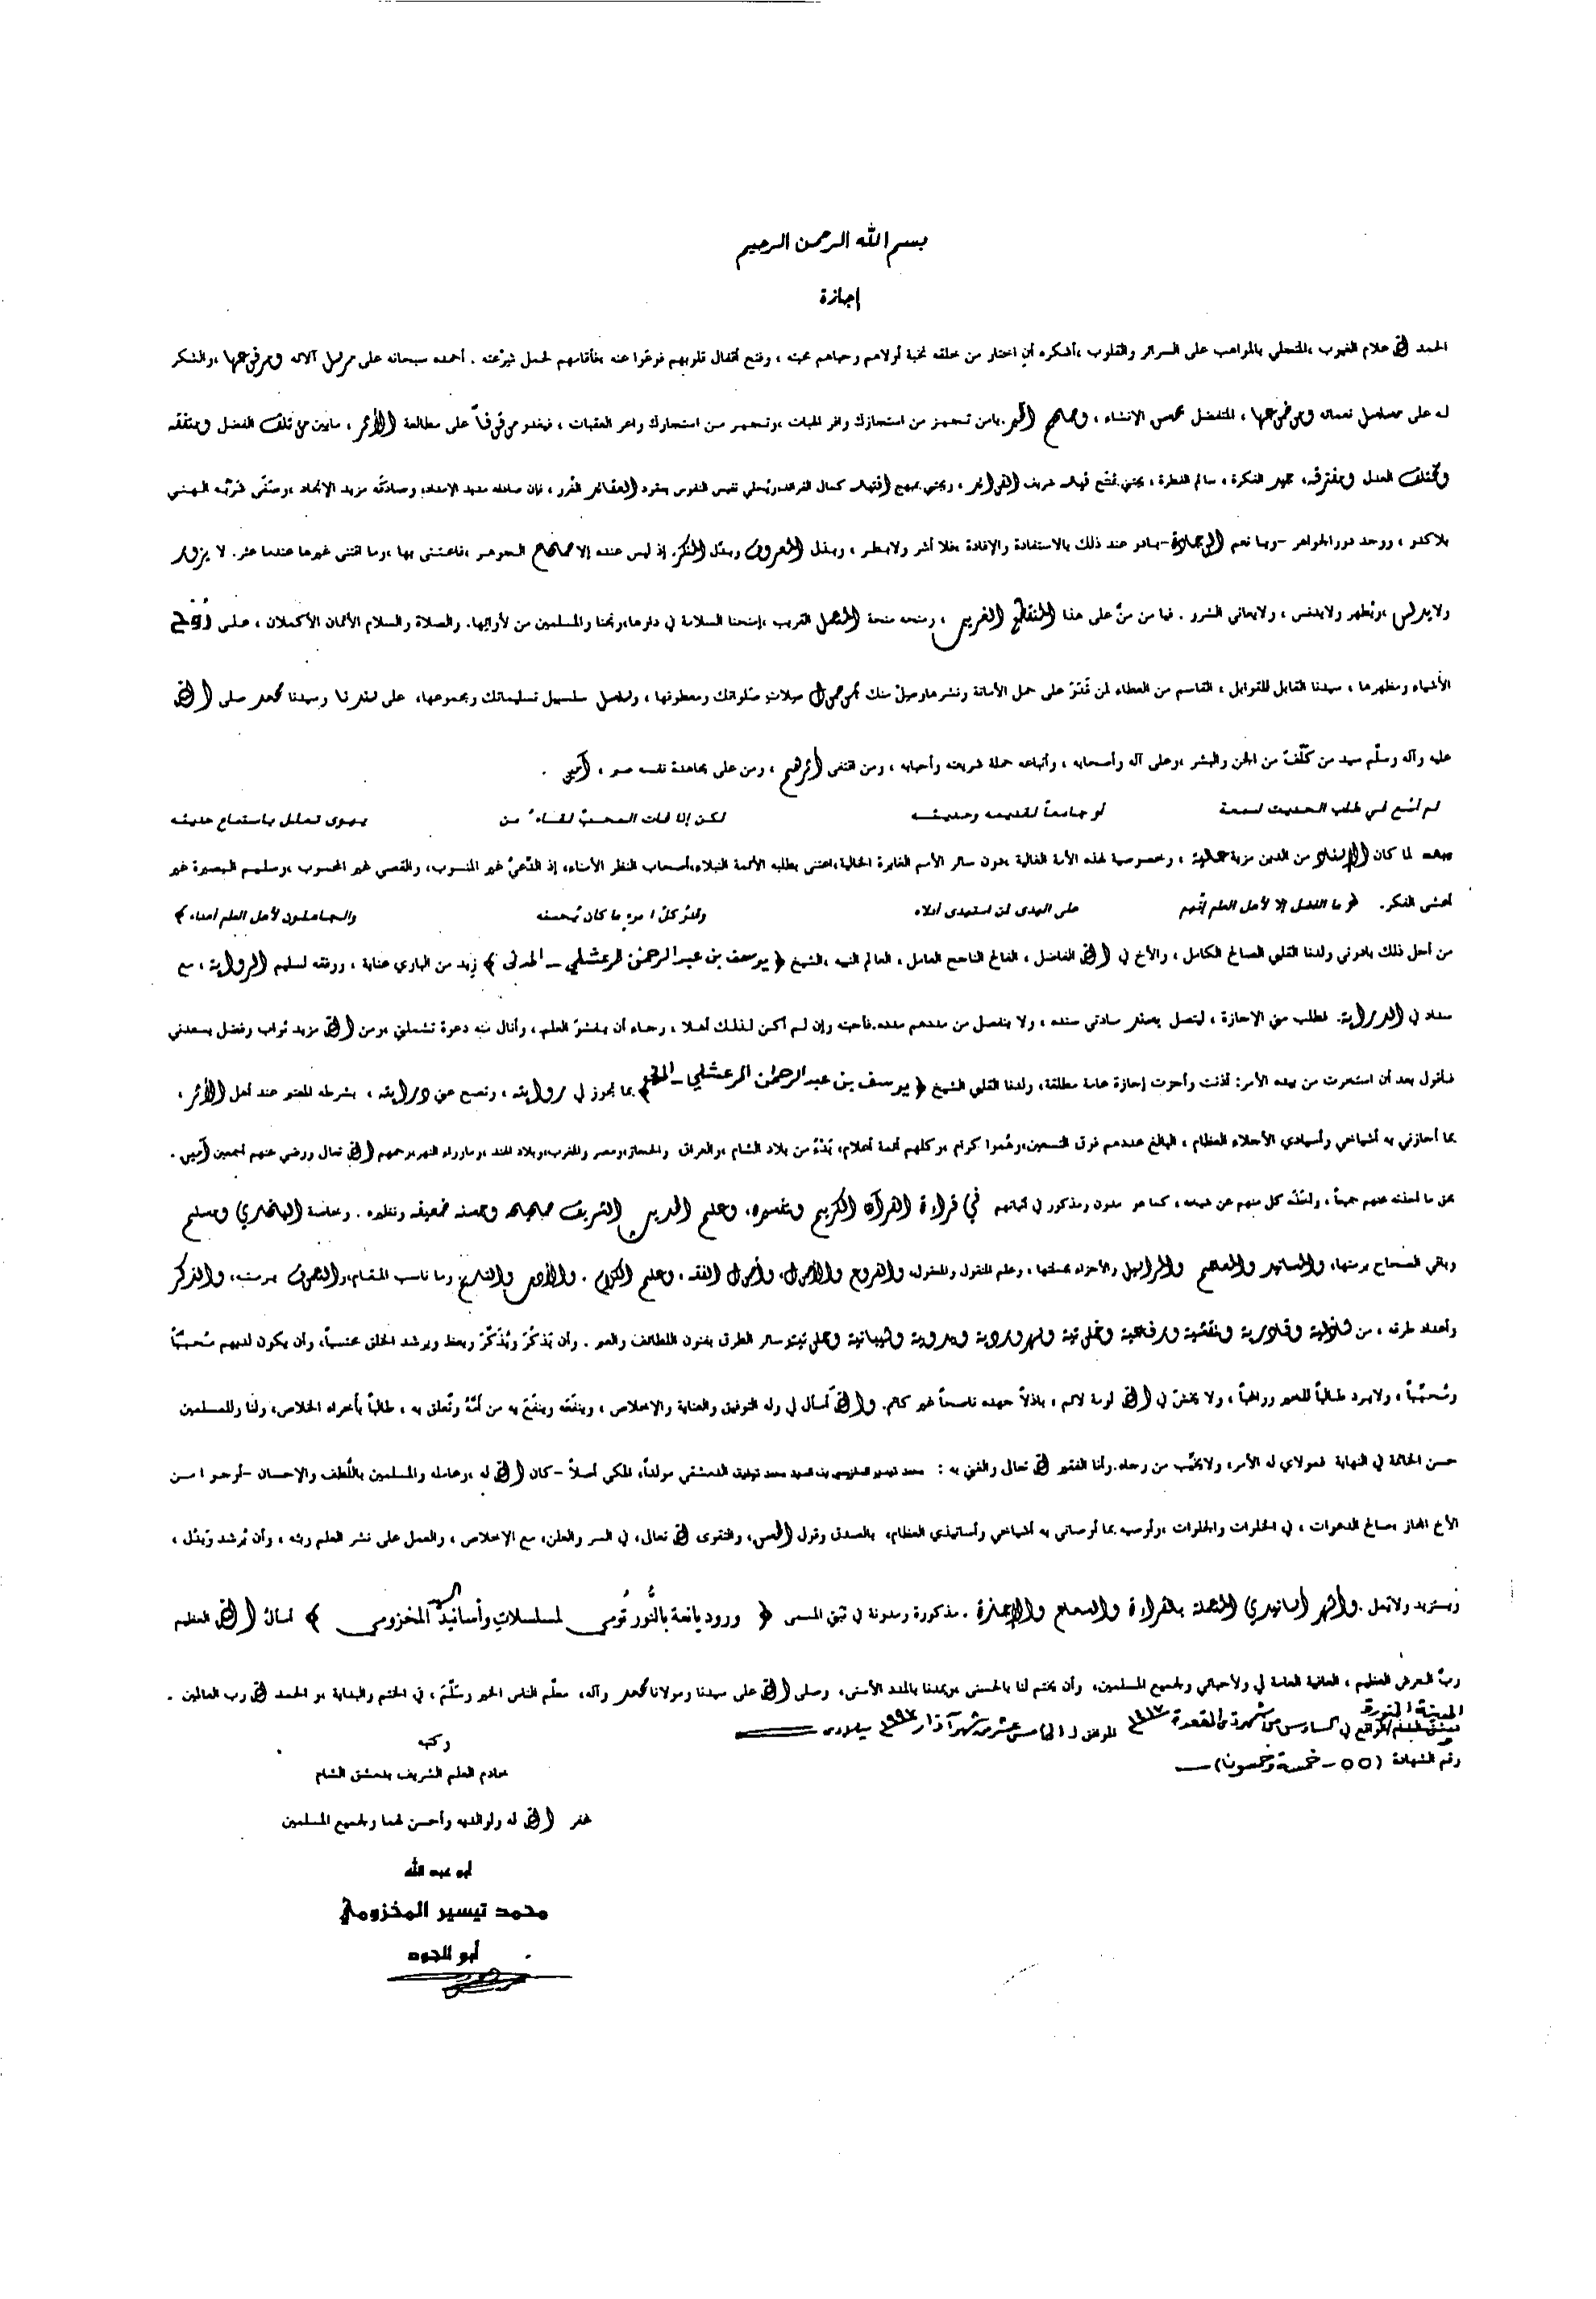 بسم الله الرحمن الرحيم
إجازة
الحمد لله علام الغيوب ،المتحلي بالمواهب على السرائر والقلوب ،أشكره أن اختار من خلقه نخبة أولاهم وحباهم محبته ، وفتح أقفال قلوبهم فوعوا عنه بمأقامهم لحمل شرعته . أحمده سبحانه على مرسل آلائه ومرفوعها ،والشكر
له على مسلسل نعمائه وموضوعها ، المتفضل بمحض الإنشاء ، يامن تجهز من استجازك وافر الهبات ،وتجير من استجارك واعر العقبات ، فيغدو موقوفاً على مطالعة الأثر ، مابين مؤتلف الفضل ومتفقه
ومختلف العدل ومفترقه، الفكرة ، سالم الفطرة ، شريف الفوائد ، كمال نفيس النفوس بعقود العقائد الغرر ، فإن مديد الامداد، وصادقه مزيد الإتحاد ،وصفى شربه الهني
بلا كدر ، ووجد درر الجواهر -وبها نعم الوجادة- بادر عند ذلك بالاستفادة والإفادة بغلا أشر ولا بطر ، وبذل المعروف وبدّل المنكر. إذ ليس عنده إلا صحاح الجوهر ،فاعتنى بها ،وما اقتنى غيرها عندما عثر. لا يزور
ولا يدلس ،ويُطهر ولا يدنس ، ولا يعاني الشرر . فيا من منّ على هذا المنقطع الغريب ، ومنحه منحة المتصل القريب ،إمنحنا السلامة في دارها،ونجنا والمسلمين من لأوائها. والصلاة والسلام الأتمان الأكملان ، على رُوْح
الأشياء ومظهرها ، سيدنا القابل للقوابل ، القاسم من العطاء لمن على حمل الأمانة ونشرها،وصِلْ منك بموصول صِلات صَلواتك ومعطوفها ، وسلسل سلسبيل تسليماتك ومجموعها، على سيدنا محمد صلى الله
عليه وآله وسلّم سيد من كلّفَ من الجن والبشر ،وعلى آله وأصحابه ، وأتباعه حملة شريعته وأحبابه ، ومن اقتفى أثرهم ، ومن على مجاهدة نفسه صبر ، آمين .
لم أسْعَ في طلب الحديث لسمعة أو جامعاً لقديمه وحديثه لكن إذا فات المحبّ لقاءُ من يهوى تعلل باستماع حديثه
وبعد لما كان الإسناد من الدين مزية عالية ، وخصوصية لهذه الأمة الغالية ،دون سائر الأمم الغابرة الخالية،اعتنى بطلبه الأئمة النبلاء،أصحاب النظر الأمناء، إذ الدَّعيُّ غير المنسوب، والقصي غير المحسوب ،وسليم البصيرة غير
أعشى الفكر. ﴿ ما الفضل إلا لأهل العلم إنّهم على الهدى لمن استهدى أدلاء وقدْرُ كلّ امرء ما كان يُحسنه والجاهلون لأهل العلم أعداء ﴾
من أجل ذلك بادرني ولدنا القلبي الصالح الكامل ، والأخ في الله الفاضل ، الفالح الناجح العامل ، العالم النبيه ،الشيخ ﴿ يوسف بن عبد الرحمن المرعشلي - الحسني ﴾ زيد من الباري عناية ، ووفقه لسليم الرواية ، مع
سداد في الدراية. فطلب مني الإجازة ، ليتصل بسند سادتي سنده ، ولا ينفصل من مددهم مدده.فأجبته وإن لم أكن لذلك أهلاً ، رجاء أن يفشوَ العلم ، وأنال منه دعوة تشملني ،ومن الله مزيد ثواب وفضل يسعدني
فأقول بعد أن استخرت من بيده الأمر: أذنت وأجزت إجازة عامة مطلقة، ولدنا القلبي الشيخ ﴿ يوسف بن عبد الرحمن المرعشلي - ﴾ بما تجوز لي روايته ، وتصح عني درايته ، بشرطه المعتبر عند أهل الأثر ،
بما أجازني به أشياخي وأسيادي الأجلاء العظام ، البالغ عددهم فوق التسعين،وهُموا كرام ،وكلهم أئمة أعلام، من بلاد الشام ،والعراق والحجاز،ومصر والمغرب،وبلاد الهند ،وماوراء النهر،رحمهم الله تعالى ورضي عنهم أجمعين آمين .
بحق ما أخذته عنهم جميعاً ، وأخَذَه كل منهم عن شيخه، كما هو مدون ومذكور في ثبتاتهم في قراءة القرآن الكريم وتفسيره، وعلم الحديث الشريف صحيحه وحسنه ضعيفه ونظيره . وبخاصة البخاري ومسلم
وباقي الصحاح برمتها، والمسانيد والمعاجم والمراسيل والأجزاء بجملتها ، وعلم المنقول والمعقول، والفروع والأصول، وأصول الفقه ، وعلم الكلام . والأدب والتاريخ وما ناسب المقام،والتصوف برمته، والذكر
وأعداد طرقه ، من شاذلية وقادرية ونقشبندية ورفاعية وخلوتية وسهروردية وبدوية وشيبانية ومولويّة،وسائر الطرق بفنون اللطائف والعبر . وأن يَذكُرَ ويُذَكِّرَ ويعظ ويرشد الخلق محتسباً، وأن يكون لديهم مُحبَّباً
ومُحبِّباً ، ولايرد طالباً للخير وراغباً ، ولا يخشَ في الله لومة لائم ، باذلاً جهده ناصحاً غير كاتم. والله أسأل لي وله التوفيق والعناية والإخلاص ، وينفَعَه وينفعَ به من أمَّهُ وتعلق به ، طالباً بأخراه الخلاص، ولنا وللمسلمين
حسن الخاتمة في النهاية فمولاي له الأمر، ولا يخيِّب من رجاه. وأنا الفقير لله تعالى والغني به : محمد تيسير المخزومي بن السيد محمد توفيق الدمشقي مولداً، المكي أصلاً -كان الله له ،وعامله والمسلمين باللّطف والإحسان -أرجوا من
الأخ المجاز ،صالح الدعوات ، في الخلوات والجلوات ،وأوصيه بما أوصاني به أشياخي وأساتيذي العظام، بالصدق وقول الحق، والتقوى لله تعالى، في السر والعلن، مع الإخلاص ، والعمل على نشر العلم وبثه ، وأن يُرشد ويَدُل ،
ويستزيد ولا يَمل .وأشهر أسانيدي المتصلة بالقراءة والسماع والإجازة . مذكورة ومدونة في ثبتي المسمى ﴿ ورود يانعة بالنُّور تُومي لمسلسلات وأسانيد السيد المخزومي ﴾ أسألُ الله العظيم
ربُّ العرش العظيم ، العافية العامة لي ولأحبابي ولجميع المسلمين، وأن يختم لنا بالحسنى ،ويمدنا بالمدد الأسنى، وصلى الله على سيدنا ومولانا محمد وآله، معلّم الناس الخير وسَلّمَ ، في الختم والبداية ،و الحمد لله رب العالمين .
المدينة المنورة
الواقع في السادس من شهر ذي القعدة ١٤١٧ الموافق ل الخامس عشر من شهر آذار ١٩٩٧ ميلادي
رقم الشهادة (٥٥ - خمسة وخمسون)
وكتبه
خادم العلم الشريف بدمشق الشام
غفر الله له ولوالديه وأحسن لهما ولجميع المسلمين
أبو عبد الله
محمد تيسير المخزومي
أبو الجود